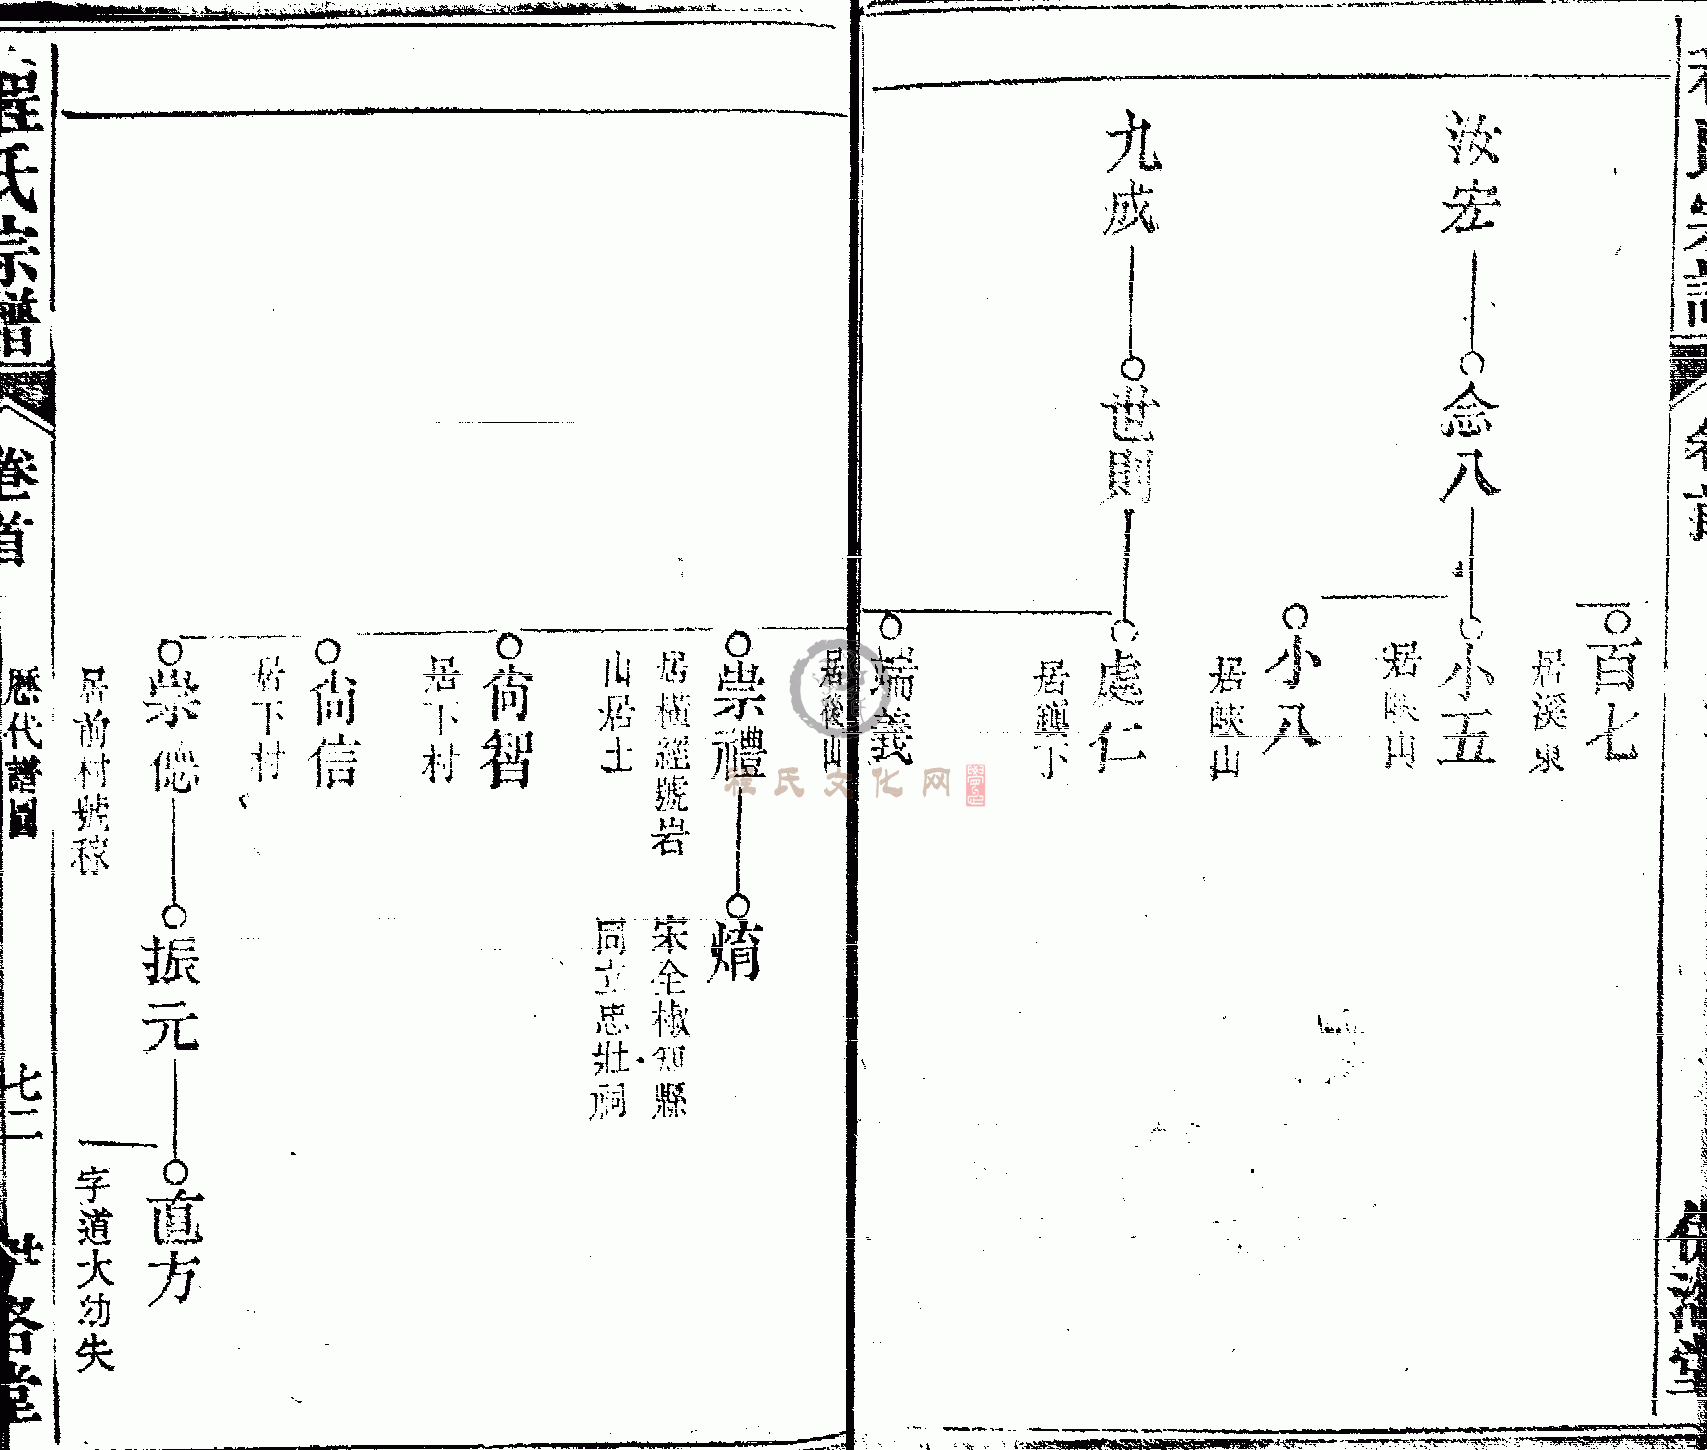 百七
居溪東
汝宏
念八
小五
居峽山
小八
居峽山
九成
世則
處仁
居鎮下
端義
居後山
崇禮
居橫經號岩
山居士
熵
宋全椒知縣
同立忠壯祠
尚智
居下村
尚信
居下村
崇偲
居前村號稼
振元
直方
字道大幼失
程氏宗譜
卷首
歷代譜圖
七二
洛堂
程氏文化网